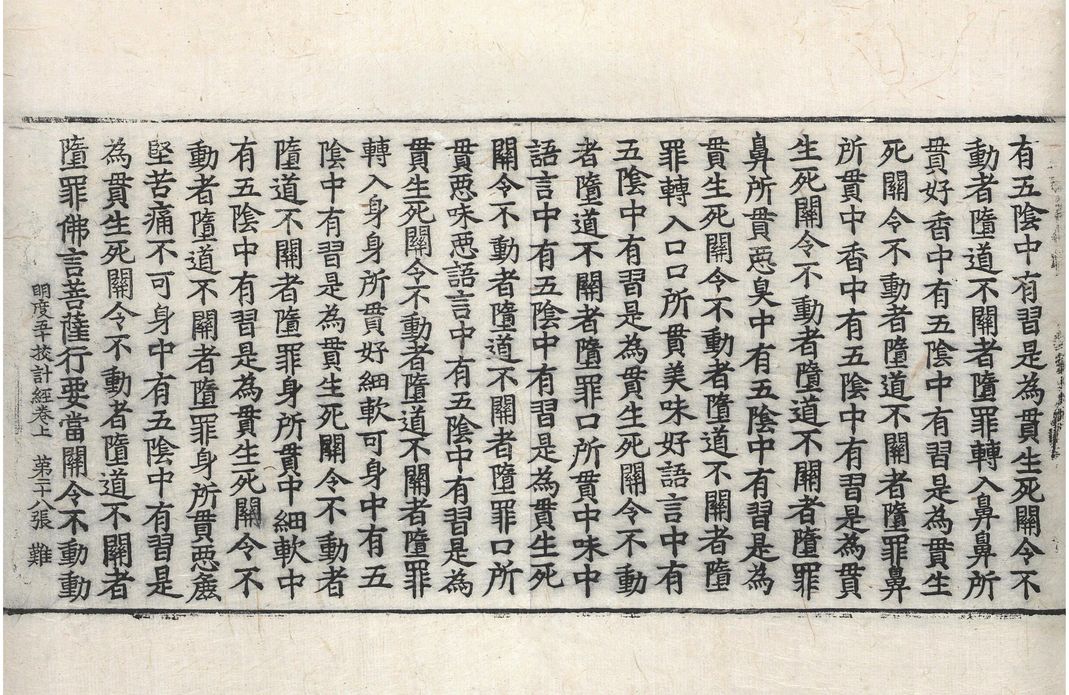 有五陰中有習是為貫生死關令不
動者墮道不關者墮罪轉入鼻鼻所
貫好香中有五陰中有習是為貫生
死關令不動者墮道不關者墮罪鼻
所貫中香中有五陰中有習是為貫
生死關令不動者墮道不關者墮罪
鼻所貫惡臭中有五陰中有習是為
貫生死關令不動者墮道不關者墮
罪轉入口口所貫美味好語言中有
五陰中有習是為貫生死關令不動
者墮道不關者墮罪口所貫中味中
語言中有五陰中有習是為貫生死
關令不動者墮道不關者墮罪口所
貫惡味惡語言中有五陰中有習是為
貫生死關令不動者墮道不關者墮罪
轉入身身所貫好細軟可身中有五
陰中有習是為貫生死關令不動者
墮道不關者墮罪身所貫中細軟中
有五陰中有習是為貫生死關令不
動者墮道不關者墮罪身所貫惡麁
堅苦痛不可身中有五陰中有習是
為貫生死關令不動者墮道不關者
墮罪佛言菩薩行要當關令不動動
明度五十校計經卷上 第二十八張 難